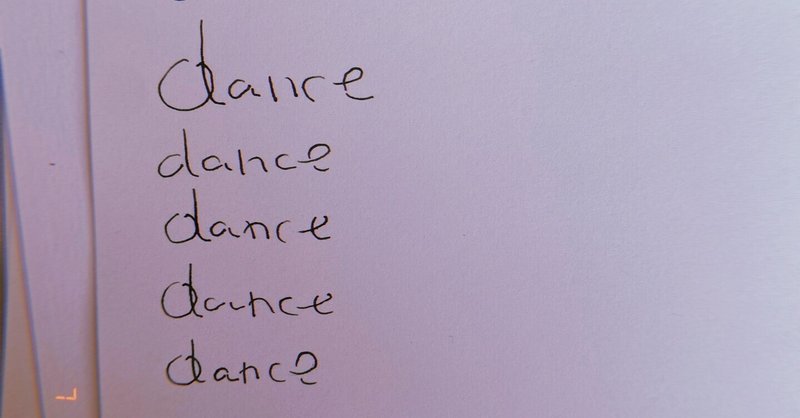 dance
dance
dance
dance
dance